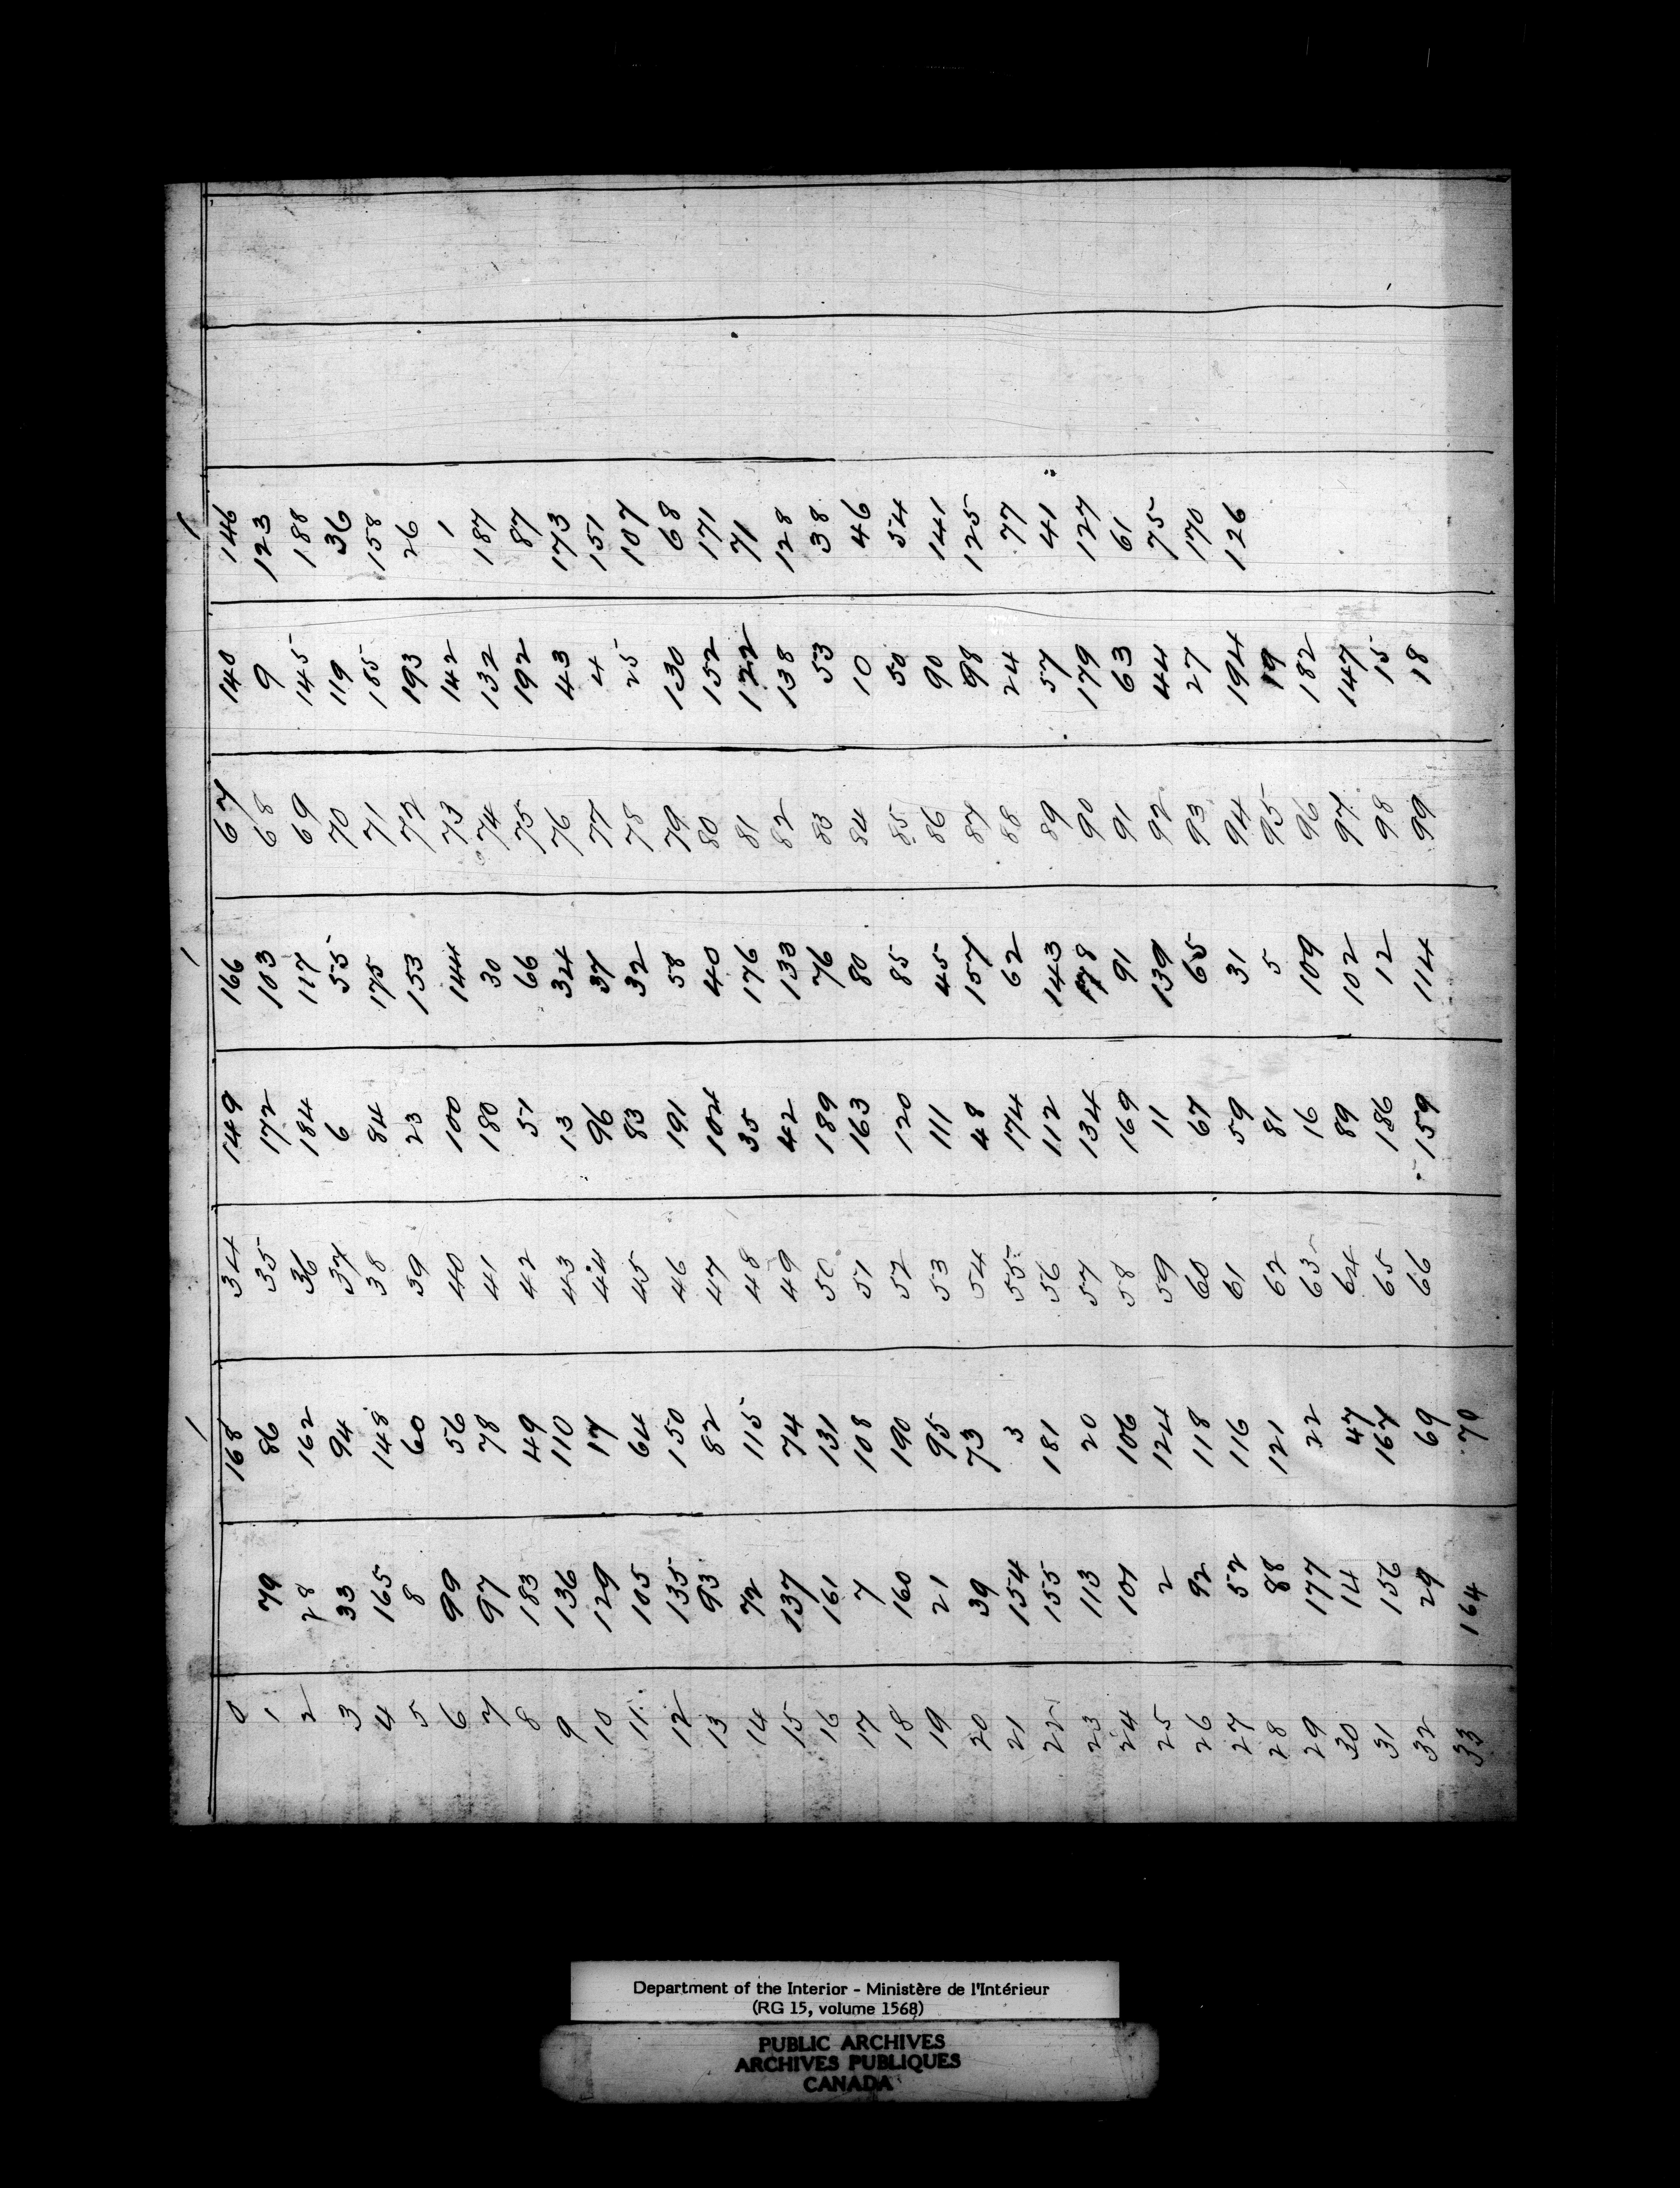 1 1 1
0 168 34 149 166 67 140 146
1 79 86 35 172 103 68 9 123
2 28 162 36 184 117 69 145 188
3 33 94 37 6 55 70 119 36
4 165 148 38 84 175 71 185 158
5 8 60 39 23 153 72 193 26
6 99 56 40 100 144 73 142 1
7 97 78 41 180 30 74 132 187
8 183 49 42 51 66 75 192 87
9 136 110 43 13 324 76 43 173
10 129 17 44 96 37 77 4 151
11 105 64 45 83 32 78 25 107
12 135 150 46 191 58 79 130 68
13 93 82 47 104 40 80 152 171
14 72 115 48 35 176 81 122 71
15 137 74 49 42 133 82 138 128
16 161 131 50 189 76 83 53 38
17 7 108 51 163 80 84 10 46
18 160 190 52 120 85 85 50 54
19 21 95 53 111 45 86 90 141
20 39 73 54 48 157 87 98 125
21 154 3 55 174 62 88 24 77
22 155 181 56 112 143 89 57 41
23 113 20 57 134 178 90 179 127
24 101 106 58 169 91 91 63 61
25 2 124 59 11 139 92 44 75
26 92 118 60 67 65 93 27 170
27 52 116 61 59 31 94 194 126
28 88 121 62 81 5 95 19
29 177 22 63 16 109 96 182
30 14 47 64 89 102 97 147
31 156 167 65 186 12 98 15
32 29 69 66 159 114 99 18
33 164 70
Department of the Interior - Ministère de l'Intérieur
(RG 15, volume 1568)
PUBLIC ARCHIVES
ARCHIVES PUBLIQUES
CANADA